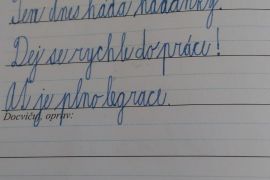 Ten dnes hádá hádanky.
Dej se rychle do práce!
Ať je plno legrace.
Docvičit, oprav: